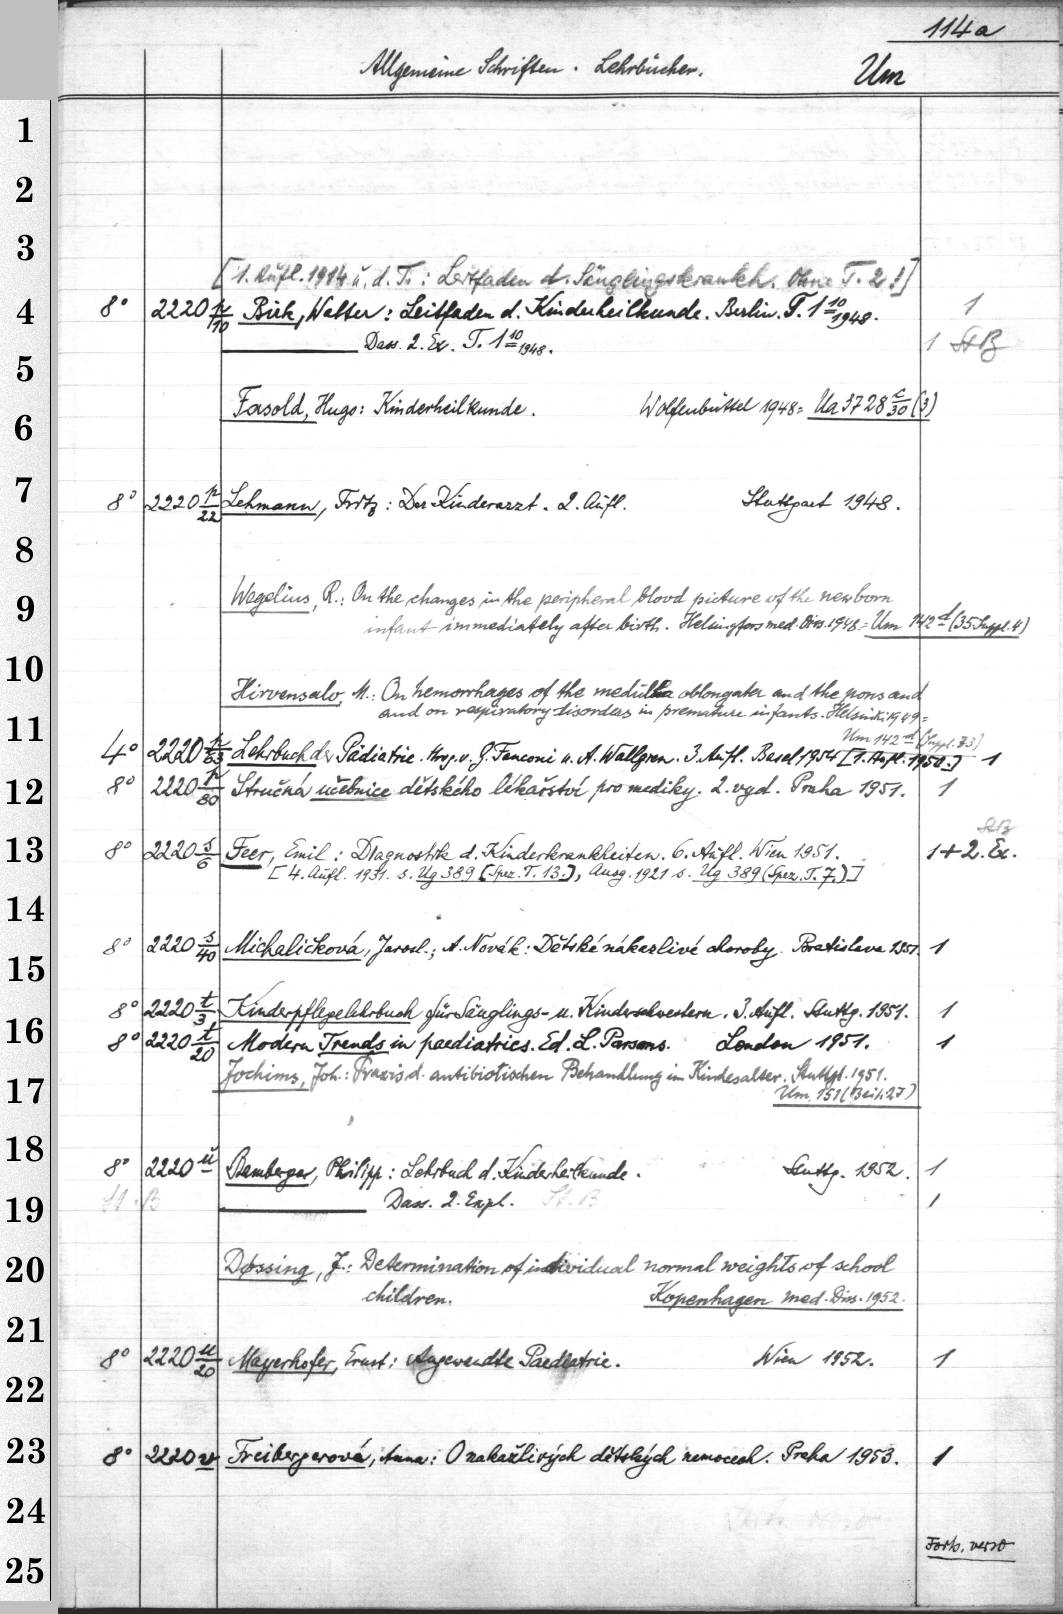 114a
Allgemeine Schriften. Lehrbücher. Um
1
2
3
[1. Aufl. 1914 u. d. T.: Leitfaden d. Säuglingskrankh. Ohne T. 2!]
4 8° 2220 p/10 Birk, Walter: Leitfaden d. Kinderheilkunde. Berlin. T. 1 10 1948. 1
Dass. 2. Ex. T. 1 10 1948. 1 StB
5
6 Fasold, Hugo: Kinderheilkunde. Wolfenbüttel 1948 = Ua 3728 c/30 (3)
7 8° 2220 p/22 Lehmann, Fritz: Der Kinderarzt. 2. Aufl. Stuttgart 1948.
8
9 Wegelius, R.: On the changes in the peripheral blood picture of the newborn
infant immediately after birth. Helsingfors med. Diss. 1948 = Um 142 d (35 Suppl. 4)
10
Hirvensalo, M.: On hemorrhages of the medulla oblongata and the pons and
and on respiratory disorders in premature infants. Helsinki 1949 =
11 Um 142 d (Suppl. 73)
4° 2220 p/63 Lehrbuch der Pädiatrie. Hrsg. v. G. Fanconi u. A. Wallgren. 3. Aufl. Basel 1954 [1. Aufl. 1950.] 1
12 8° 2220 p/80 Stručná učebnice dětského lékařství pro mediky. 2. vyd. Praha 1951. 1
StB
13 8° 2220 s/6 Feer, Emil: Diagnostik d. Kinderkrankheiten. 6. Aufl. Wien 1951. 1 + 2. Ex.
[4. Aufl. 1931. s. Ug 389 (Spez. T. 13.), Ausg. 1921 s. Ug 389 (Spez. T. 7.)]
14
15 8° 2220 s/40 Michaličková, Jarosl.; A. Novák: Dětské nákazlivé choroby. Bratislava 1951. 1
8° 2220 t/3 Kinderpflegelehrbuch für Säuglings- u. Kinderschwestern. 3. Aufl. Stuttg. 1951. 1
16 8° 2220 t/20 Modern Trends in paediatrics. Ed. L. Parsons. London 1951. 1
Jochims, Joh.: Praxis d. antibiotischen Behandlung im Kindesalter. Stuttgt. 1951.
17 Um 151 (Beih. 27)
18 8° 2220 u Bamberger, Philipp: Lehrbuch d. Kinderheilkunde. Stuttg. 1952. 1
19 St. B Dass. 2. Expl. St. B 1
20 Døssing, J.: Determination of individual normal weights of school
children. Kopenhagen med. Diss. 1952.
21
8° 2220 u/20 Mayerhofer, Ernst: Angewandte Paediatrie. Wien 1952. 1
22
23 8° 2220 v Freibergerová, Anna: O nakažlivých dětských nemocech. Praha 1953. 1
24
Forts. verso
25